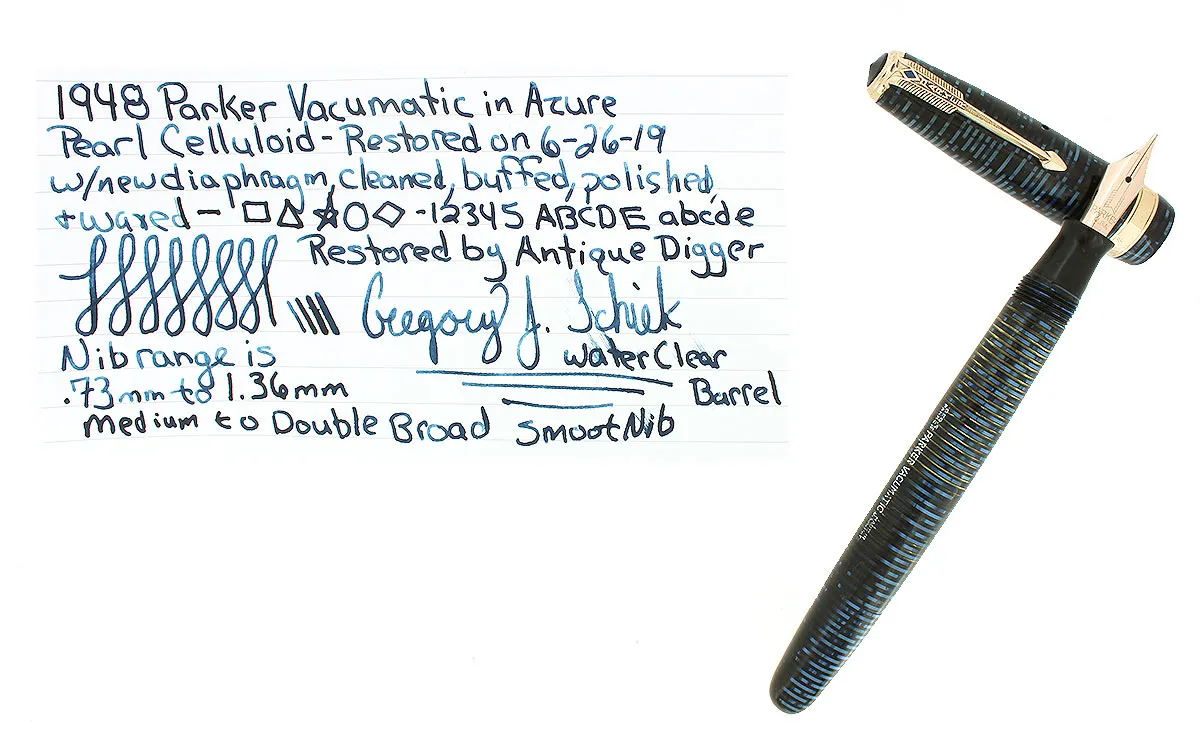 1948 Parker Vacumatic in Azure
Pearl Celluloid - Restored on 6-26-19
w/new diaphragm, cleaned, buffed, polished,
+ waxed - - 12345 ABCDE abcde
Restored by Antique Digger
Gregory J. Schiek
Nib range is
.73mm to 1.36mm
Medium to Double Broad
Water Clear
Barrel
Smoot Nib
PARKER
PARKER VACUMATIC